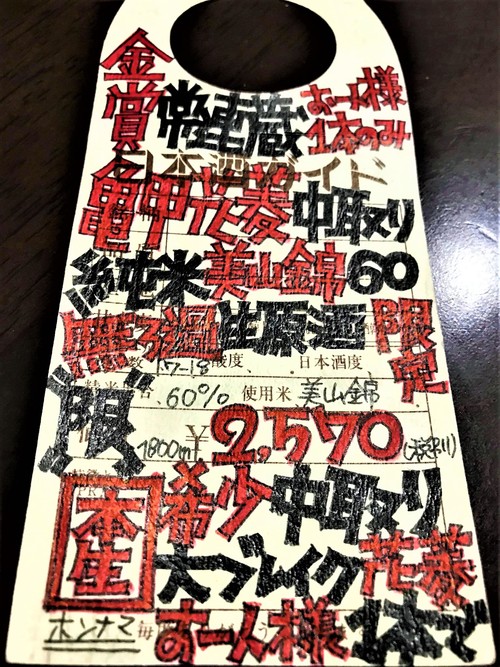 金賞 常連蔵 お一人様
1本のみ
日本酒ガイド
亀甲花菱 中取り
純米 美山錦 60
無ろ過 生原酒 限定
数 17-18 酸度、 日本酒度
精米 合 60% 使用米 美山錦
"限" 1800ml ¥2,570
本生 希少 中取り
大ブレイク 花菱
ホンナマ お一人様 1本で